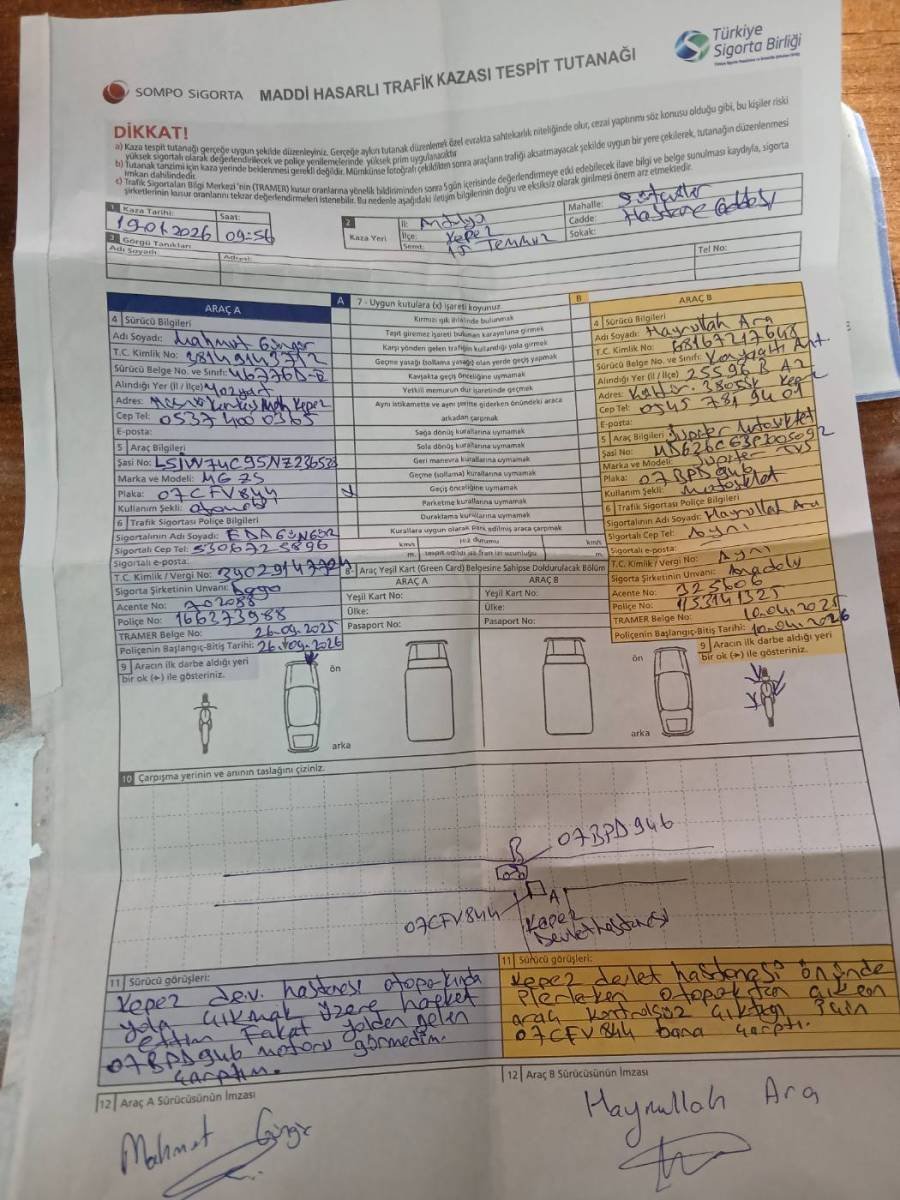 SOMPO SİGORTA
MADDİ HASARLI TRAFİK KAZASI TESPİT TUTANAĞI
Türkiye
Sigorta Birliği
DİKKAT!
a) Kaza tespit tutanağı gerçeğe uygun şekilde düzenleyiniz. Gerçeğe aykırı tutanak düzenlemek özel evrakta sahtekarlık niteliğinde olur, cezai yaptırımı söz konusu olduğu gibi, bu kişiler riski
yüksek sigortalı olarak değerlendirilecek ve poliçe yenilemelerinde yüksek prim uygulanacaktır
b) Tutanak tanzimi için kaza yerinde beklenmesi gerekli değildir. Mümkünse fotoğrafı çekildikten sonra araçların trafiği aksatmayacak şekilde uygun bir yere çekilerek, tutanağın düzenlenmesi
imkan dahilindedir.
c) Trafik Sigortaları Bilgi Merkezi'nin (TRAMER) kusur oranlarına yönelik bildiriminden sonra 5 gün içerisinde değerlendirmeye etki edebilecek ilave bilgi ve belge sunulması kaydıyla, sigorta
şirketlerinin kusur oranlarını tekrar değerlendirmeleri istenebilir. Bu nedenle aşağıdaki iletişim bilgilerinin doğru ve eksiksiz olarak girilmesi önem arz etmektedir.
1 Kaza Tarihi: Saat:
19.01.2026 09:56
2 Kaza Yeri
İl: Antalya
İlçe: Kepez
Semt: 15 Temmuz
Mahalle:
Cadde: Hastane Caddesi
Sokak:
3 Görgü Tanıkları
Adı Soyadı Adresi: Tel No:
ARAÇ A
4 Sürücü Bilgileri
Adı Soyadı: Mahmut Güngör
T.C. Kimlik No:
Sürücü Belge No. ve Sınıfı:
Alındığı Yer (İl / İlçe) Yozgat
Adres: Kepez
Cep Tel: 0537 400 0365
E-posta:
5 Araç Bilgileri
Şasi No:
Marka ve Modeli: MG ZS
Plaka: 07CFV844
Kullanım Şekli: otomobil
6 Trafik Sigortası Poliçe Bilgileri
Sigortalının Adı Soyadı: EDA GÜNGÖR
Sigortalı Cep Tel: 530672 5896
Sigortalı e-posta:
T.C. Kimlik / Vergi No:
Sigorta Şirketinin Unvanı:
Acente No: 702088
Poliçe No: 166273988
TRAMER Belge No:
Poliçenin Başlangıç-Bitiş Tarihi: 26.09.2025
26.09.2026
9 Aracın ilk darbe aldığı yeri
bir ok (➔) ile gösteriniz.
A 7 - Uygun kutulara (x) işareti koyunuz B
Kırmızı ışık ihlalinde bulunmak
Taşıt giremez işareti bulunan karayoluna girmek
Karşı yönden gelen trafiğin kullandığı yola girmek
Geçme yasağı (sollama yasağı) olan yerde geçiş yapmak
Kavşakta geçiş önceliğine uymamak
Yetkili memurun dur işaretinde geçmek
Aynı istikamette ve aynı şeritte giderken önündeki araca
arkadan çarpmak
Sağa dönüş kurallarına uymamak
Sola dönüş kurallarına uymamak
Geri manevra kurallarına uymamak
Geçme (sollama) kurallarına uymamak
Geçiş önceliğine uymamak
Parketme kurallarına uymamak
Duraklama kurallarına uymamak
Kurallara uygun olarak park edilmiş araca çarpmak
km/s Hız durumu km/s
m. tespit edildi ise fren izi uzunluğu m.
8 - Araç Yeşil Kart (Green Card) Belgesine Sahipse Doldurulacak Bölüm
ARAÇ A ARAÇ B
Yeşil Kart No: Yeşil Kart No:
Ülke: Ülke:
Pasaport No: Pasaport No:
ARAÇ B
4 Sürücü Bilgileri
Adı Soyadı: Hayrullah Ara
T.C. Kimlik No: 68167217648
Sürücü Belge No. ve Sınıfı:
Alındığı Yer (İl / İlçe) 25596 B A2
Adres: Kepez
Cep Tel: 0545 781 9401
E-posta:
5 Araç Bilgileri
Şasi No:
Marka ve Modeli: Jupiter TVS
Plaka: 07BPD946
Kullanım Şekli: Motosiklet
6 Trafik Sigortası Poliçe Bilgileri
Sigortalının Adı Soyadı: Hayrullah Ara
Sigortalı Cep Tel: Aynı
Sigortalı e-posta:
T.C. Kimlik / Vergi No: Aynı
Sigorta Şirketinin Unvanı: Anadolu
Acente No: 325606
Poliçe No: 1153141325
TRAMER Belge No:
Poliçenin Başlangıç-Bitiş Tarihi: 10.04.2025
10.04.2026
9 Aracın ilk darbe aldığı yeri
bir ok (➔) ile gösteriniz.
ön
arka
ön
arka
10 Çarpışma yerinin ve anının taslağını çiziniz.
B 07BPD946
A
07CFV844
Kepez
Devlet hastanesi
11 Sürücü görüşleri:
Kepez dev. hastanesi otoparkında
yola çıkmak üzere hareket
ettim Fakat yolden gelen
07BPD946 motoru görmedim.
çarptım.
11 Sürücü görüşleri:
Kepez devlet hastenesi önünde
ilerlerken otoparktan çıkan
araç kontrolsüz çıktığı için
07CFV844 bana çarptı.
12 Araç A Sürücüsünün İmzası
Mahmut Güngör
12 Araç B Sürücüsünün İmzası
Hayrullah Ara